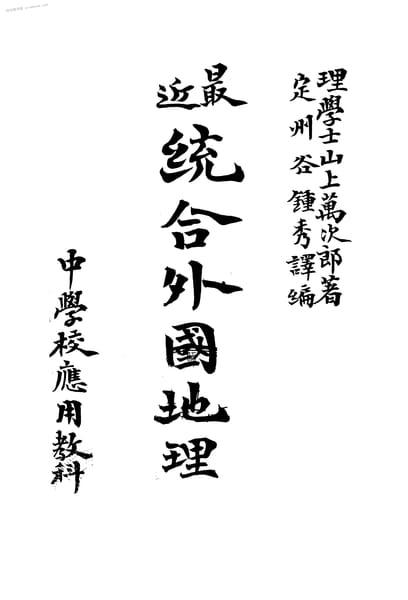 理學士山上萬次郎著
定州谷鍾秀譯編
最近
統合外國地理
中學校應用教科